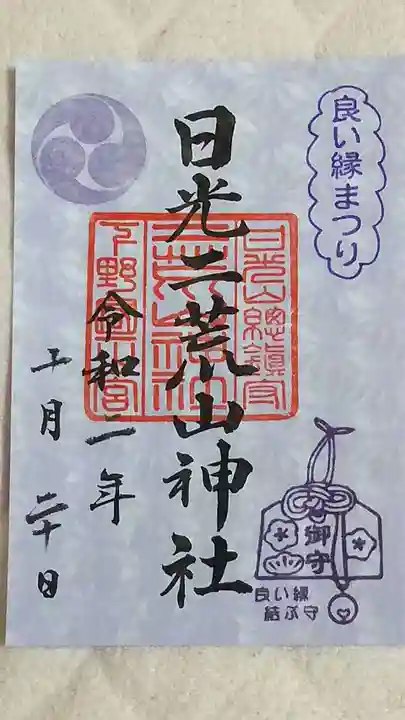 良い縁まつり
日光二荒山神社
日光山總鎮守
二荒山神社
下野國一宮
令和二年
十月二十日
御守
良い縁
結ぶ守